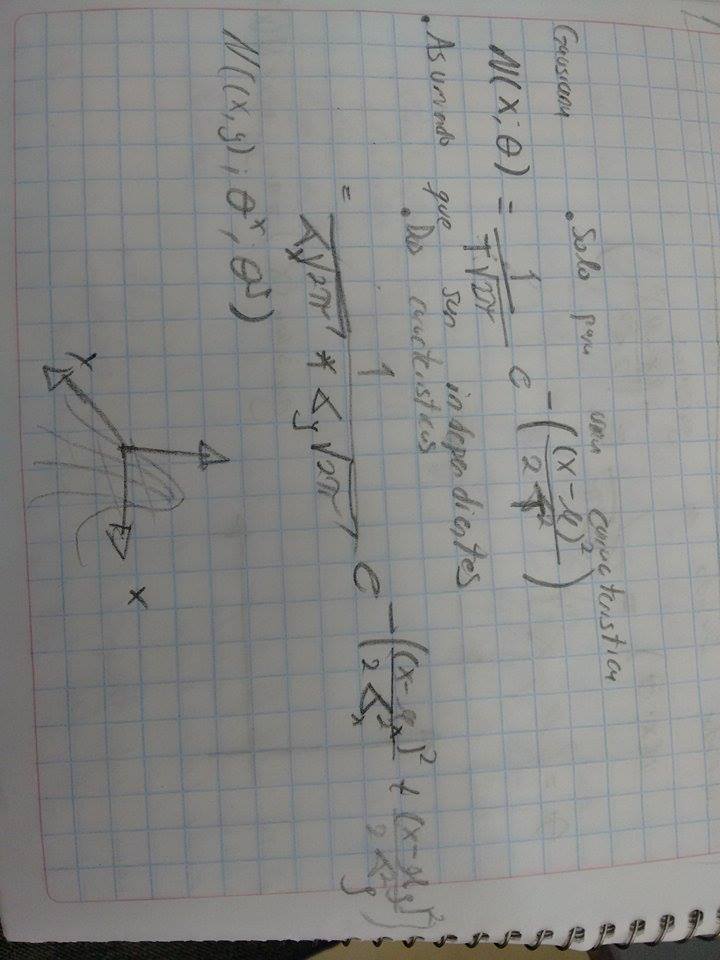 Gausiana
• Solo para una caracteristica
N(x; θ) = 1 / (σ√2π) e^-((x-μ)² / 2σ²)
• Asumiendo que son independientes
• Dos caracteristicas
= 1 / (σx√2π * σy√2π) e^-((x-μ)² / 2σ²x + (x-μy)² / 2σ²y)
N((x,y); θˣ; θʸ)
x
y